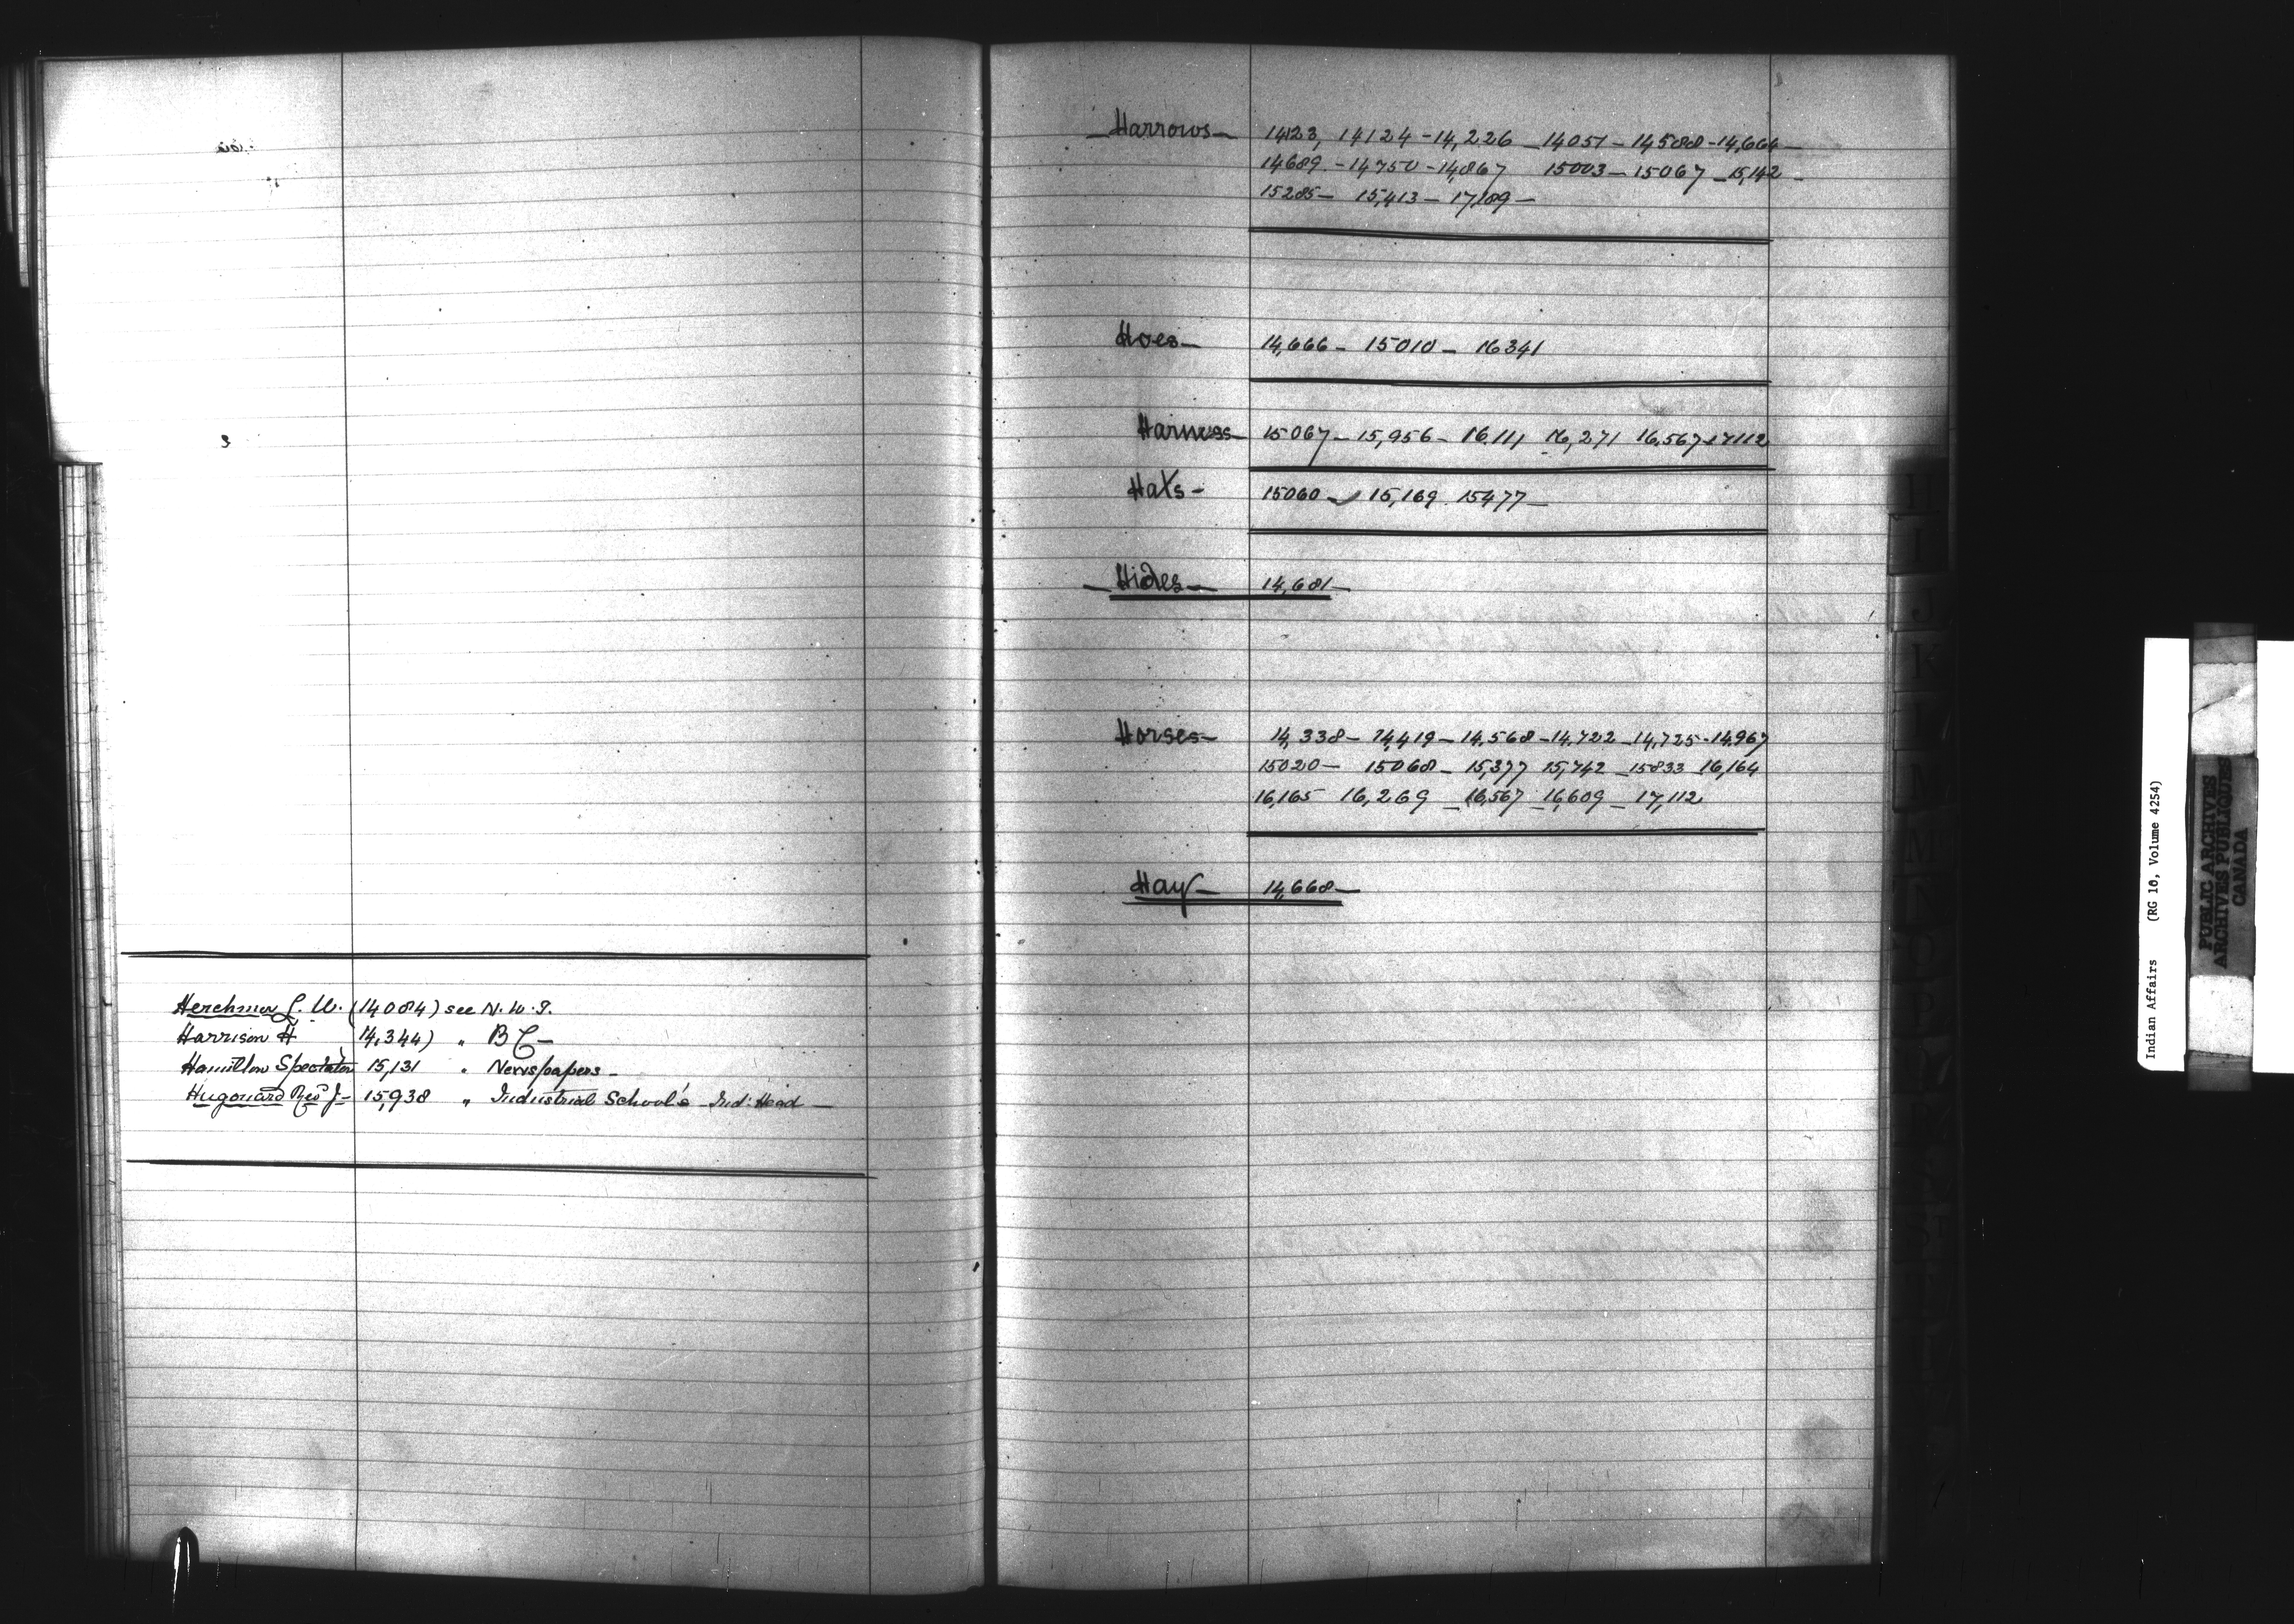 Herchmer L. W. (14084) see N. W. T.
Harrison H 14,344) " B C —
Hamilton Spectator 15,131 " Newspapers —
Hugonard Rev J — 15,938 " Industrial School's Ind: Head —
— Harrows — 14123, 14124 - 14,226 — 14051 — 14588 - 14,664 —
14689 - 14,750 - 14,867 15003 — 15067 — 15,142 -
15285 — 15,413 — 17,189 —
Hoes — 14,666 — 15010 — 16341
Harness — 15067 — 15,956 — 16,111 16,271 16,567 17112
Hats — 15060 — 15,169 15477 —
— Hides — 14,681 —
Horses — 14,338 — 14,419 — 14,568 — 14,722 — 14,725 - 14,967
15020 — 15068 — 15,377 15,742 — 15833 16,164
16,165 16,269 — 16,567 — 16,609 — 17,112
Hay — 14,668 —
H
I
J
K
L
M
N
O
P
Indian Affairs (RG 10, Volume 4254)
PUBLIC ARCHIVES
ARCHIVES PUBLIQUES
CANADA